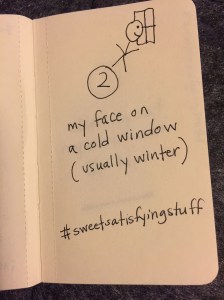 2
my face on
a cold window
(usually winter)
#sweetsatisfyingstuff